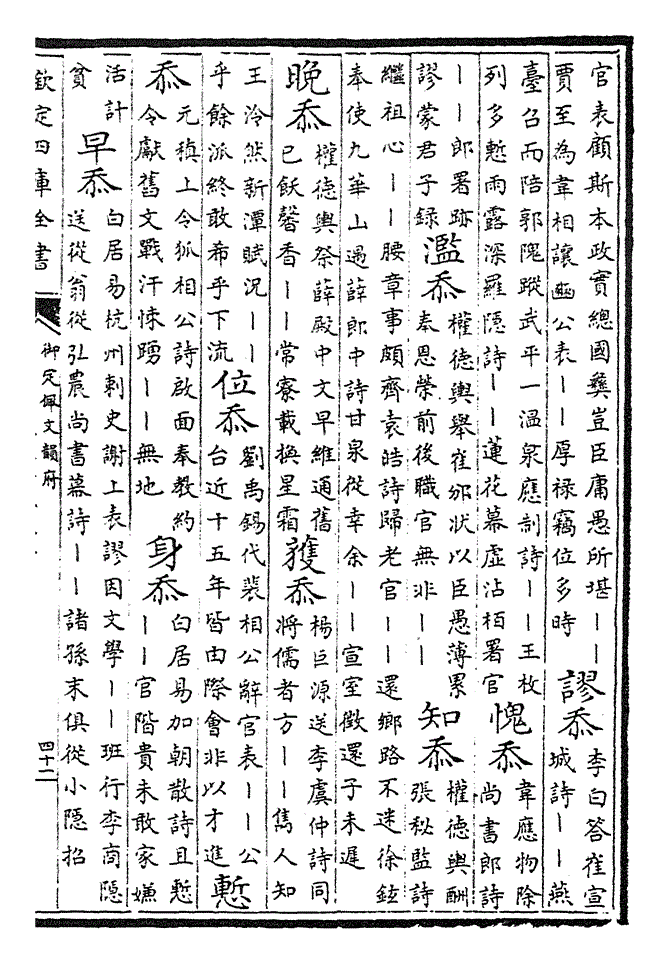 官表顧斯本政實總國彝豈臣庸愚所堪｜｜
賈至為韋相讓豳公表｜｜厚祿竊位多時
謬忝
李白答崔宣
城詩｜｜燕
臺召而陪郭隗蹤武平一溫泉應制詩｜｜王枚
列多慙雨露深羅隱詩｜｜蓮花幕虛沾栢署官
愧忝
韋應物除
尚書郎詩
｜｜郎署跡
謬蒙君子錄
濫忝
權德輿舉崔邠狀以臣愚薄累
奉恩榮前後職官無非｜｜
知忝
權德輿酬
張秘監詩
繼祖心｜｜腰章事頗齊袁皓詩歸老官｜｜還鄉路不迷徐鉉
奉使九華山遇薛郎中詩甘泉從幸余｜｜宣室徵還子未遲
晚忝
權德輿祭薛殿中文早維通舊
已飫馨香｜｜常寮載換星霜
獲忝
楊巨源送李虞仲詩同
將儒者方｜｜雋人知
王泠然新潭賦況｜｜
乎餘派終敢希乎下流
位忝
劉禹錫代裴相公辭官表｜｜公
台近十五年皆由際會非以才進
慙
忝
元稹上令狐相公詩啟面奉教約
令獻舊文戰汗悚踴｜｜無地
身忝
白居易加朝散詩且慙
｜｜官階貴未敢家嫌
活計
貧
早忝
白居易杭州刺史謝上表謬因文學｜｜班行李商隱
送從翁從弘農尚書幕詩｜｜諸孫末俱從小隱招
欽定四庫全書
御定佩文韻府
四十二